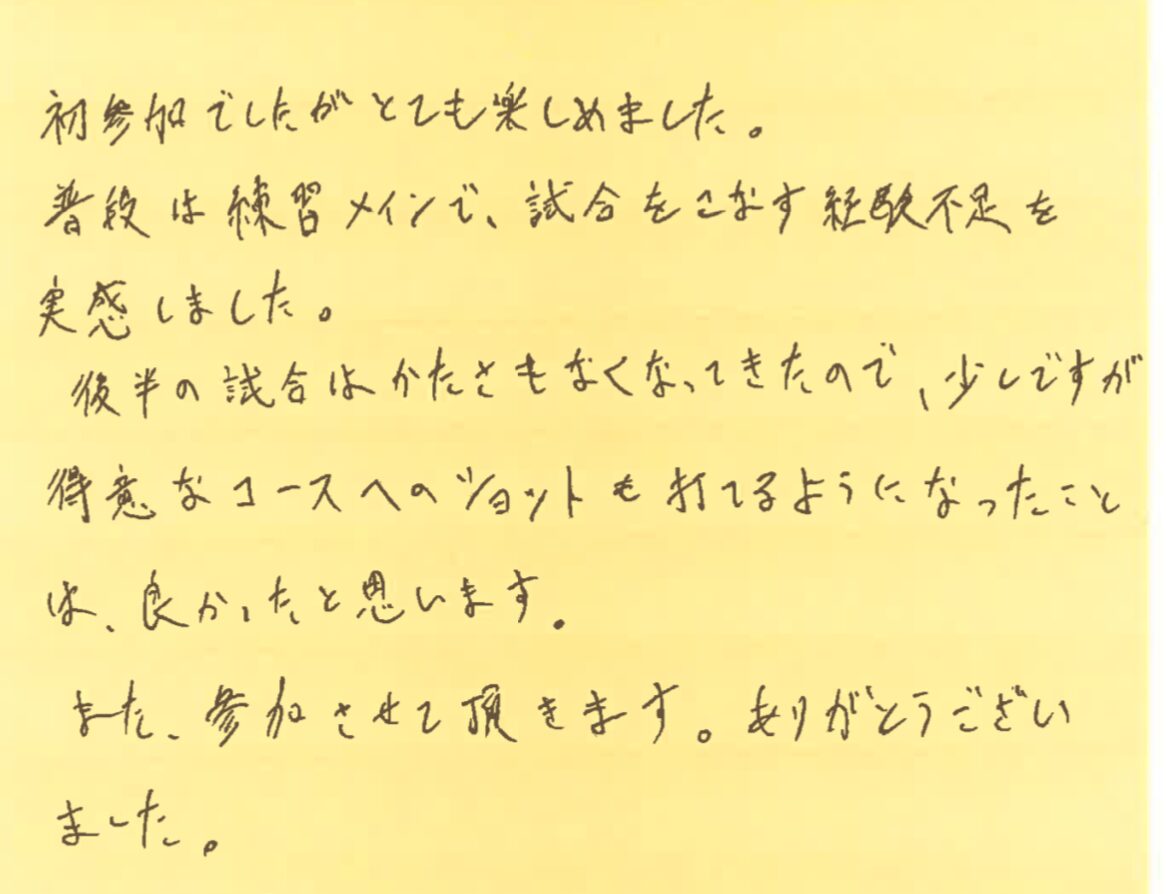 初参加でしたがとても楽しめました。
普段は練習メインで、試合をこなす経験不足を
実感しました。
後半の試合はかたさもなくなってきたので、少しですが
得意なコースへのショットも打てるようになったこと
は、良かったと思います。
また、参加させて頂きます。ありがとうござい
ました。